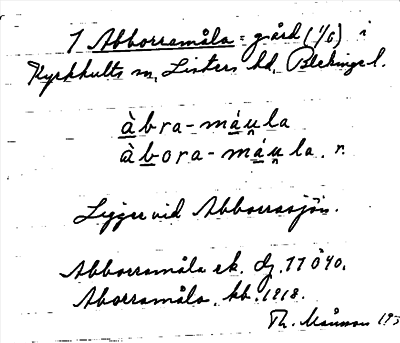 1 Abborramåla = gård (1/6) i
Kyrkhults sn, Listers hd, Blekinge l.
àbra-máu̯la
àbora-máu̯la. r.
Ligger vid Abborrasjön.
Abborramåla ek. dj. 11040.
Aborramåla, kb. 1918.
Th. Månsson